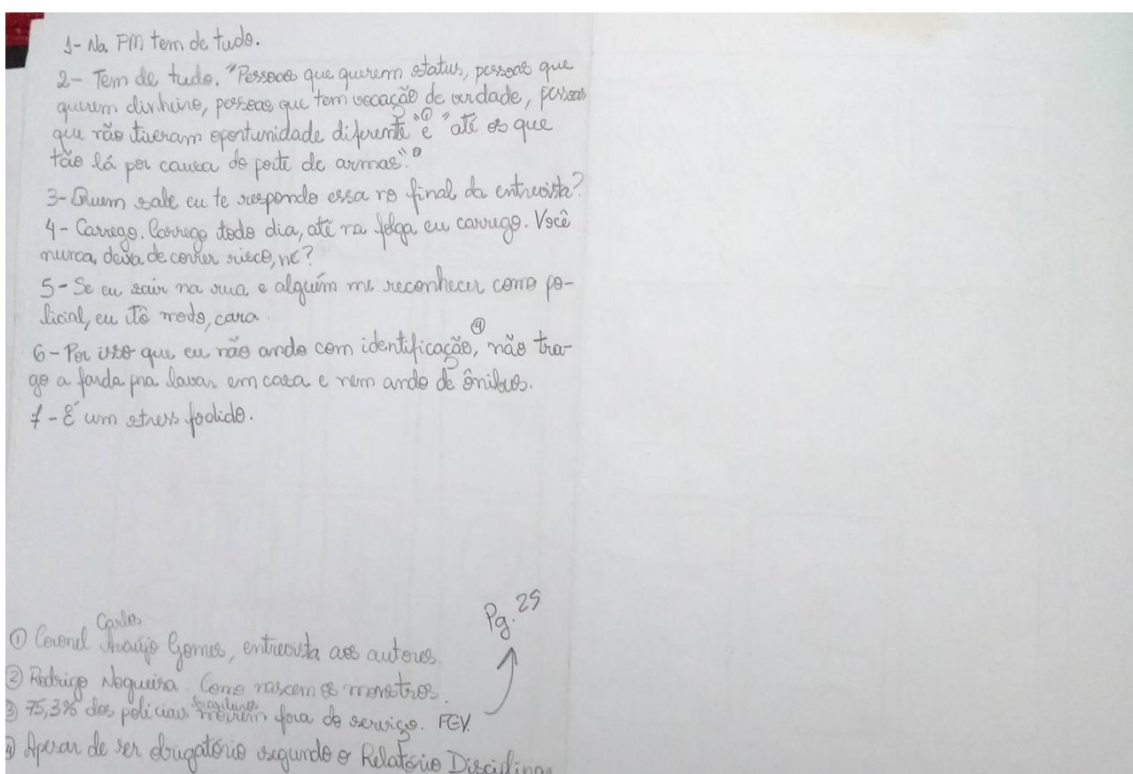 1- Na PM tem de tudo.
2- Tem de tudo. "Pessoas que querem status, pessoas que
querem dinheiro, pessoas que tem vocação de verdade, pessoas
que não tiveram oportunidade diferente"① e "até os que
tão lá por causa do porte de armas".②
3- Quem sabe eu te respondo essa no final da entrevista?
4- Carrego. Carrego todo dia, até na folga eu carrego. Você
nunca deixa de correr risco, né?
5- Se eu sair na rua e alguém me reconhecer como po-
licial, eu tô morto, cara.
6- Por isso que eu não ando com identificação,④ não tra-
go a farda pra lavar em casa e nem ando de ônibus.
7- É um stress fodido.
Pg. 25
① Coronel Carlos Araújo Gomes, entrevista aos autores.
② Rodrigo Nogueira. Como nascem os monstros.
③ 75,3% dos policiais morrem fora de serviço. FGV.
④ Apesar de ser obrigatório segundo o Relatório Disciplinar